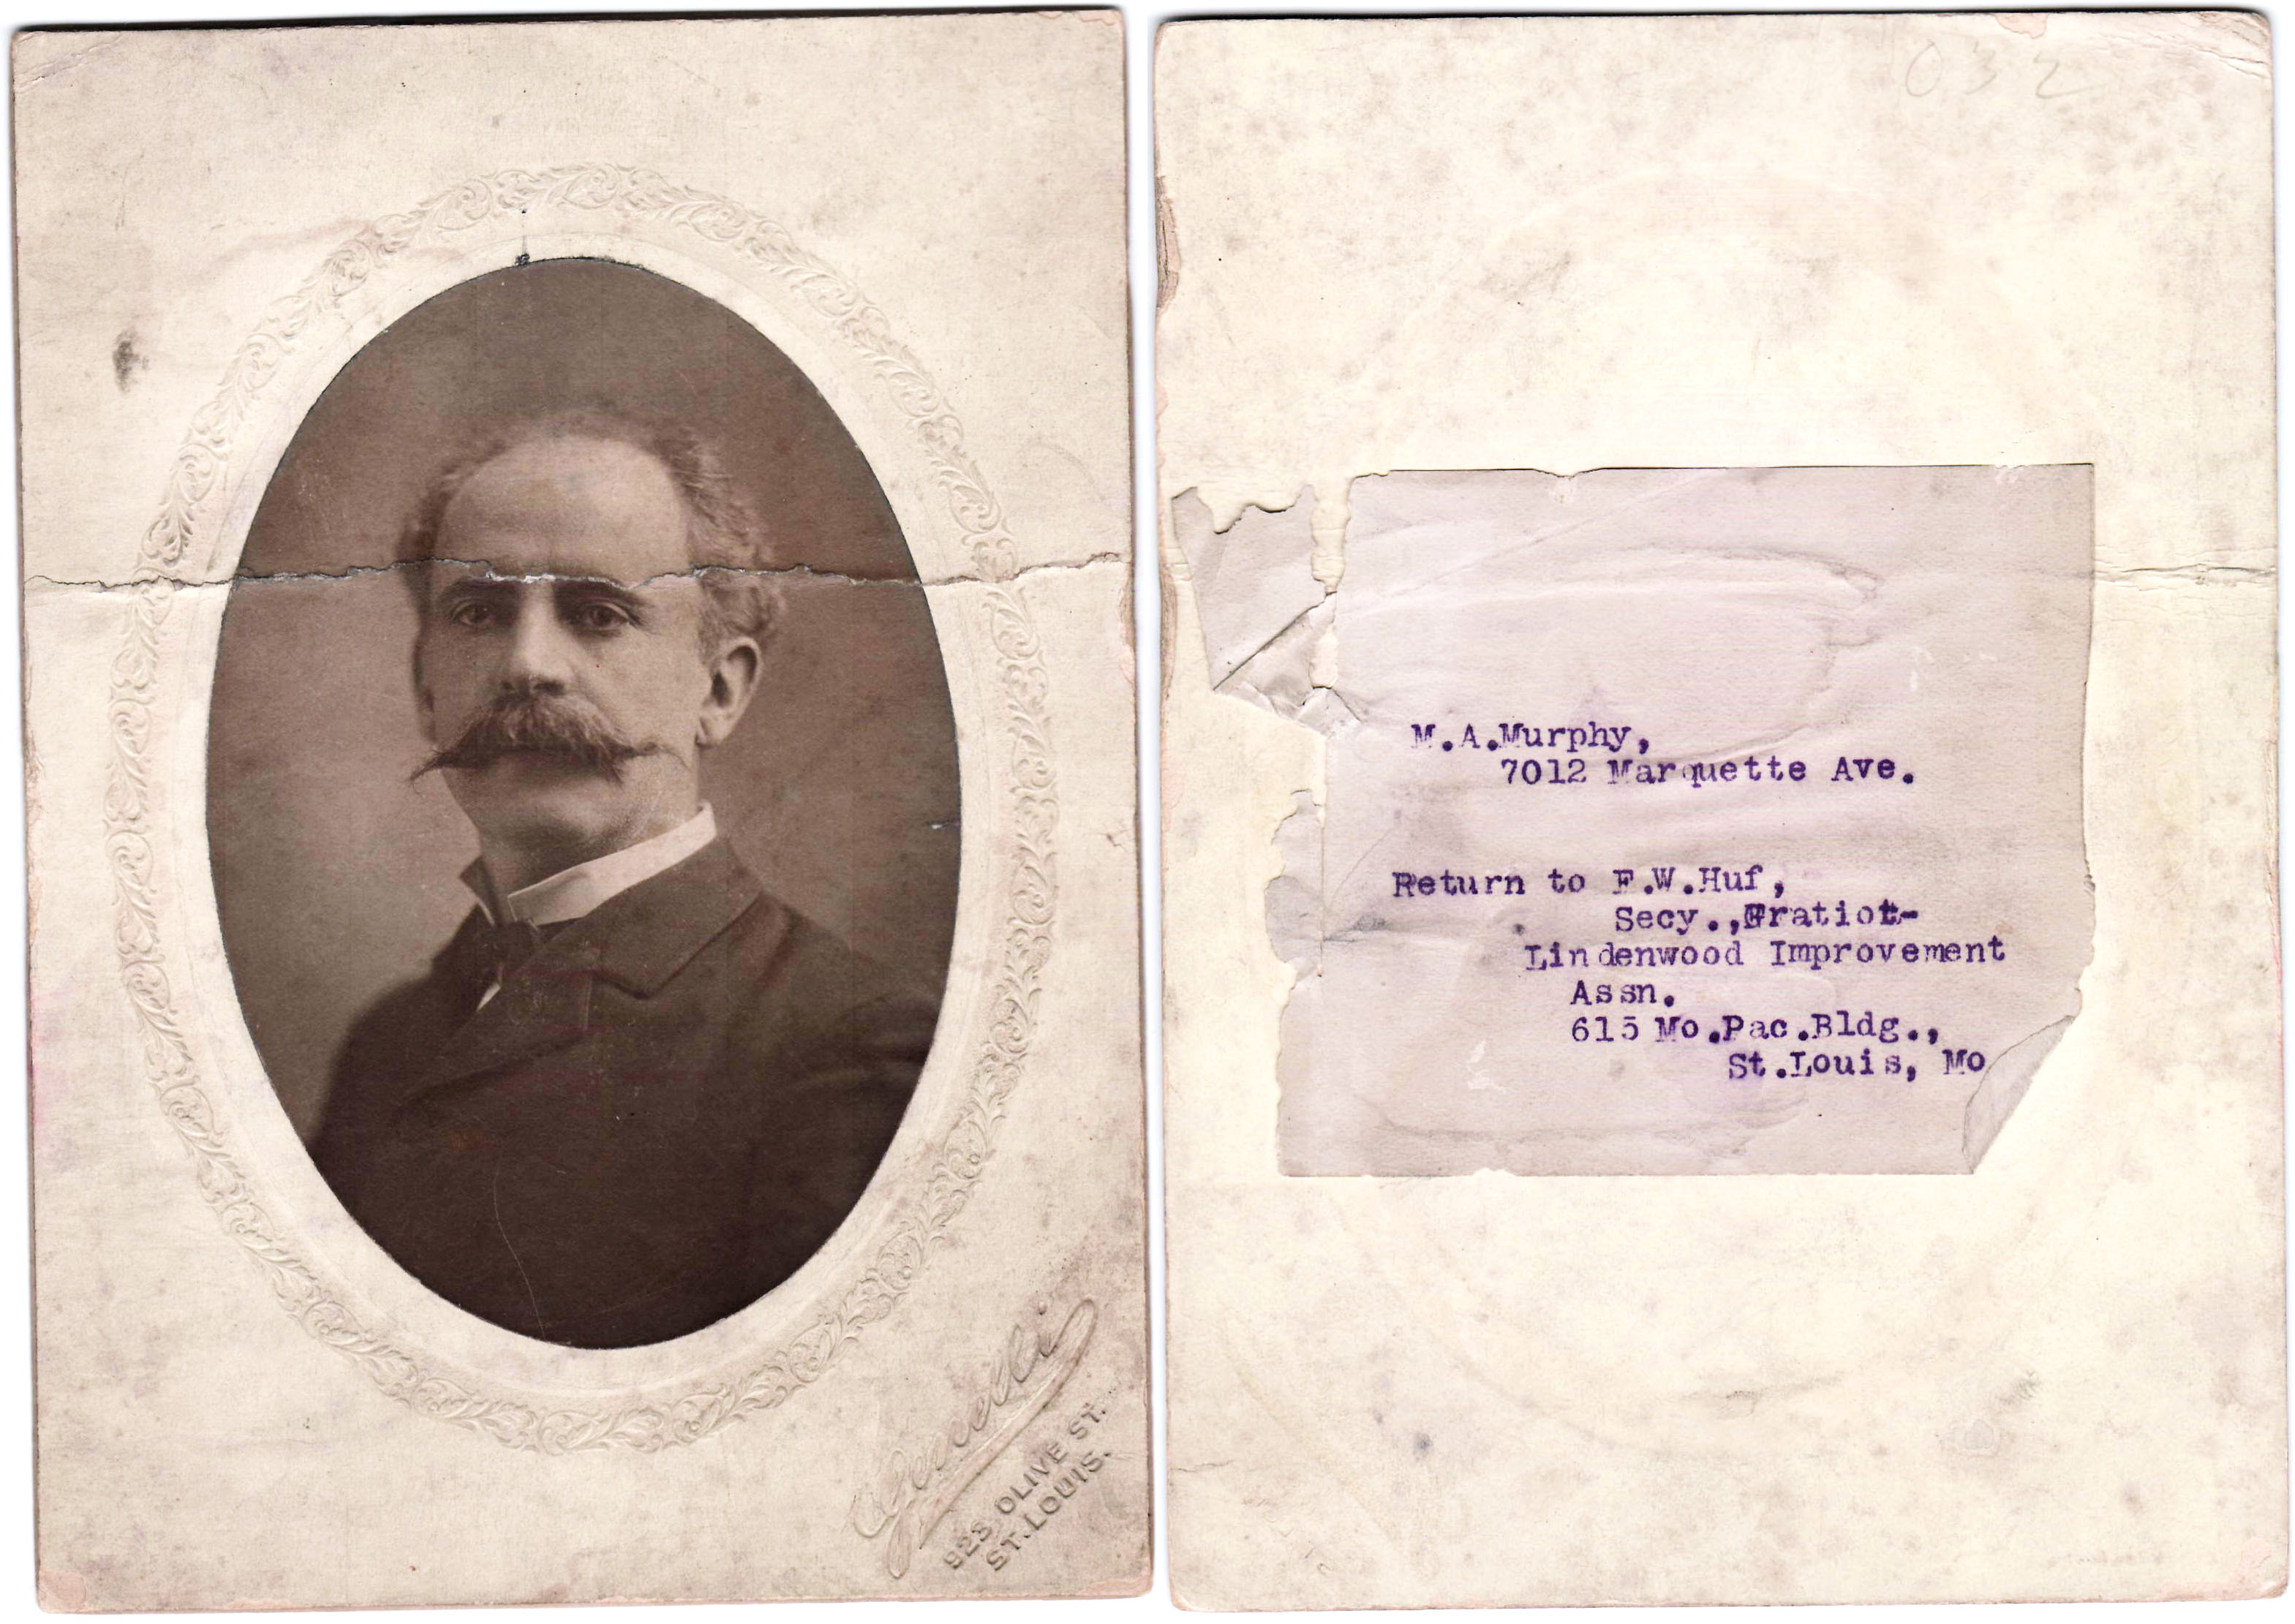 Genelli
923 OLIVE ST.
ST. LOUIS.
032
M.A.Murphy,
7012 Marquette Ave.
Return to F.W.Huf,
Secy.,Gratiot-
Lindenwood Improvement
Assn.
615 Mo.Pac.Bldg.,
St.Louis, Mo